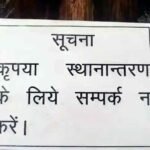 सूचना
कृपया स्थानान्तरण
के लिये सम्पर्क न
करें।